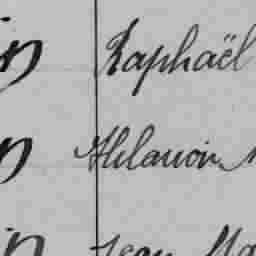 in Raphaël
n Hilarion
in Jean Ma